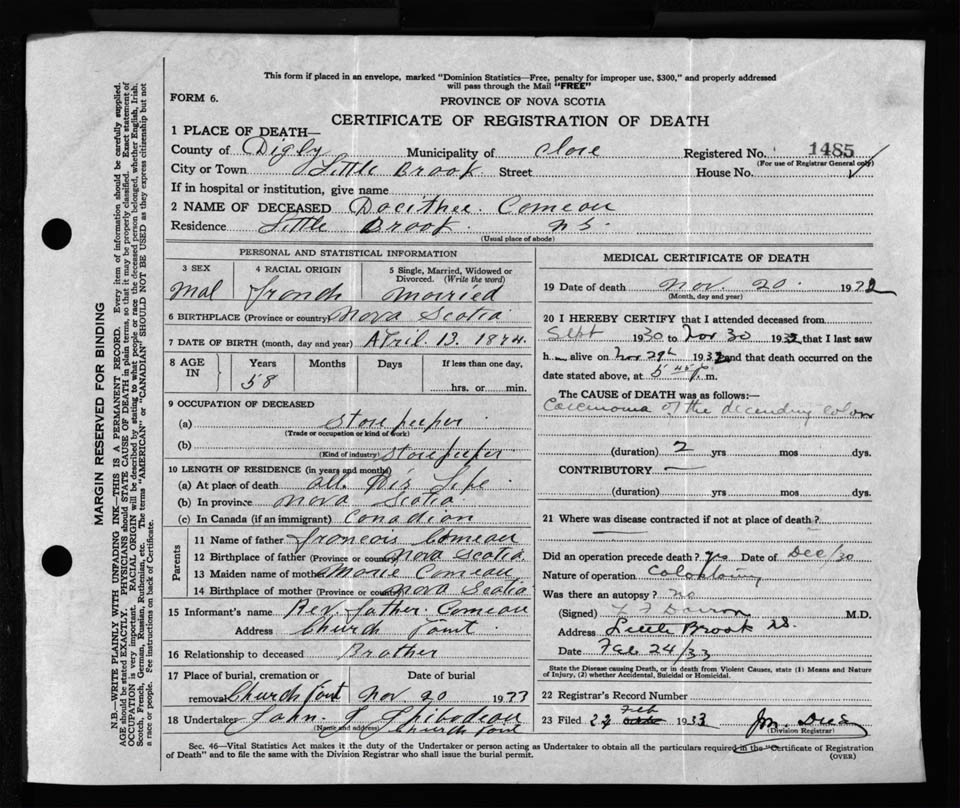 This form if placed in an envelope, marked "Dominion Statistics—Free, penalty for improper use, $300," and properly addressed
will pass through the Mail "FREE"
FORM 6.
PROVINCE OF NOVA SCOTIA
CERTIFICATE OF REGISTRATION OF DEATH
1 PLACE OF DEATH—
County of Digby Municipality of Clare Registered No. 1485
(For use of Registrar General only)
City or Town Little Brook Street House No.
If in hospital or institution, give name
2 NAME OF DECEASED Docithee Comeau
Residence Little Brook N S.
(Usual place of abode)
PERSONAL AND STATISTICAL INFORMATION
3 SEX 4 RACIAL ORIGIN 5 Single, Married, Widowed or
Divorced. (Write the word)
Mal french Married
6 BIRTHPLACE (Province or country) Nova Scotia
7 DATE OF BIRTH (month, day and year) April. 13. 1874.
8 AGE IN Years Months Days If less than one day,
58 hrs. or min.
9 OCCUPATION OF DECEASED
(a) Store keeper
(Trade or occupation or kind of work)
(b) Store keeper
(Kind of industry)
10 LENGTH OF RESIDENCE (in years and months)
(a) At place of death all His Life
(b) In province Nova Scotia
(c) In Canada (if an immigrant) Canadian
Parents
11 Name of father Francois Comeau
12 Birthplace of father (Province or country) Nova Scotia
13 Maiden name of mother Marie Comeau
14 Birthplace of mother (Province or country) Nova Scotia
15 Informant's name Rev. father. Comeau
Address Church Point
16 Relationship to deceased Brother
17 Place of burial, cremation or Date of burial
removal Church Point Nov 20 1933
18 Undertaker John J Thibodeau
(Name and address) Church Point
MEDICAL CERTIFICATE OF DEATH
19 Date of death Nov. 20. 1932
(Month, day and year)
20 I HEREBY CERTIFY that I attended deceased from
Sept 1930 to Nov 30 1932 that I last saw
h alive on Nov 29th 1932 and that death occurred on
date stated above, at 5 45 p. m.
The CAUSE OF DEATH was as follows:—
Carcinoma of the decending colon
(duration) 2 yrs mos dys.
CONTRIBUTORY —
(duration) yrs mos dys.
21 Where was disease contracted if not at place of death?
Did an operation precede death? Yes Date of Dec/30
Nature of operation
Was there an autopsy? No
(Signed) M.D.
Address Little Brook NS.
Date Feb 24/33
State the Disease causing Death, or in death from Violent Causes, state (1) Means and Nature
of Injury, (2) whether Accidental, Suicidal or Homicidal.
22 Registrar's Record Number
23 Filed 22 Feb 1933
(Division Registrar)
Sec. 46—Vital Statistics Act makes it the duty of the Undertaker or person acting as Undertaker to obtain all the particulars required in the "Certificate of Registration
of Death" and to file the same with the Division Registrar who shall issue the burial permit.
(OVER)
MARGIN RESERVED FOR BINDING
N.B.—WRITE PLAINLY WITH UNFADING INK—THIS IS A PERMANENT RECORD. Every item of information should be carefully supplied.
AGE should be stated EXACTLY. PHYSICIANS should STATE CAUSE OF DEATH in plain terms, so that it may be properly classified. Exact statement of
OCCUPATION is very important. RACIAL ORIGIN will be described by stating to what people or race the deceased person belonged, whether English, Irish,
Scotch, French, German, Russian, Ruthenian, etc. The terms "AMERICAN" or "CANADIAN" SHOULD NOT BE USED as they express citizenship but not
a race or people. See instructions on back of Certificate.